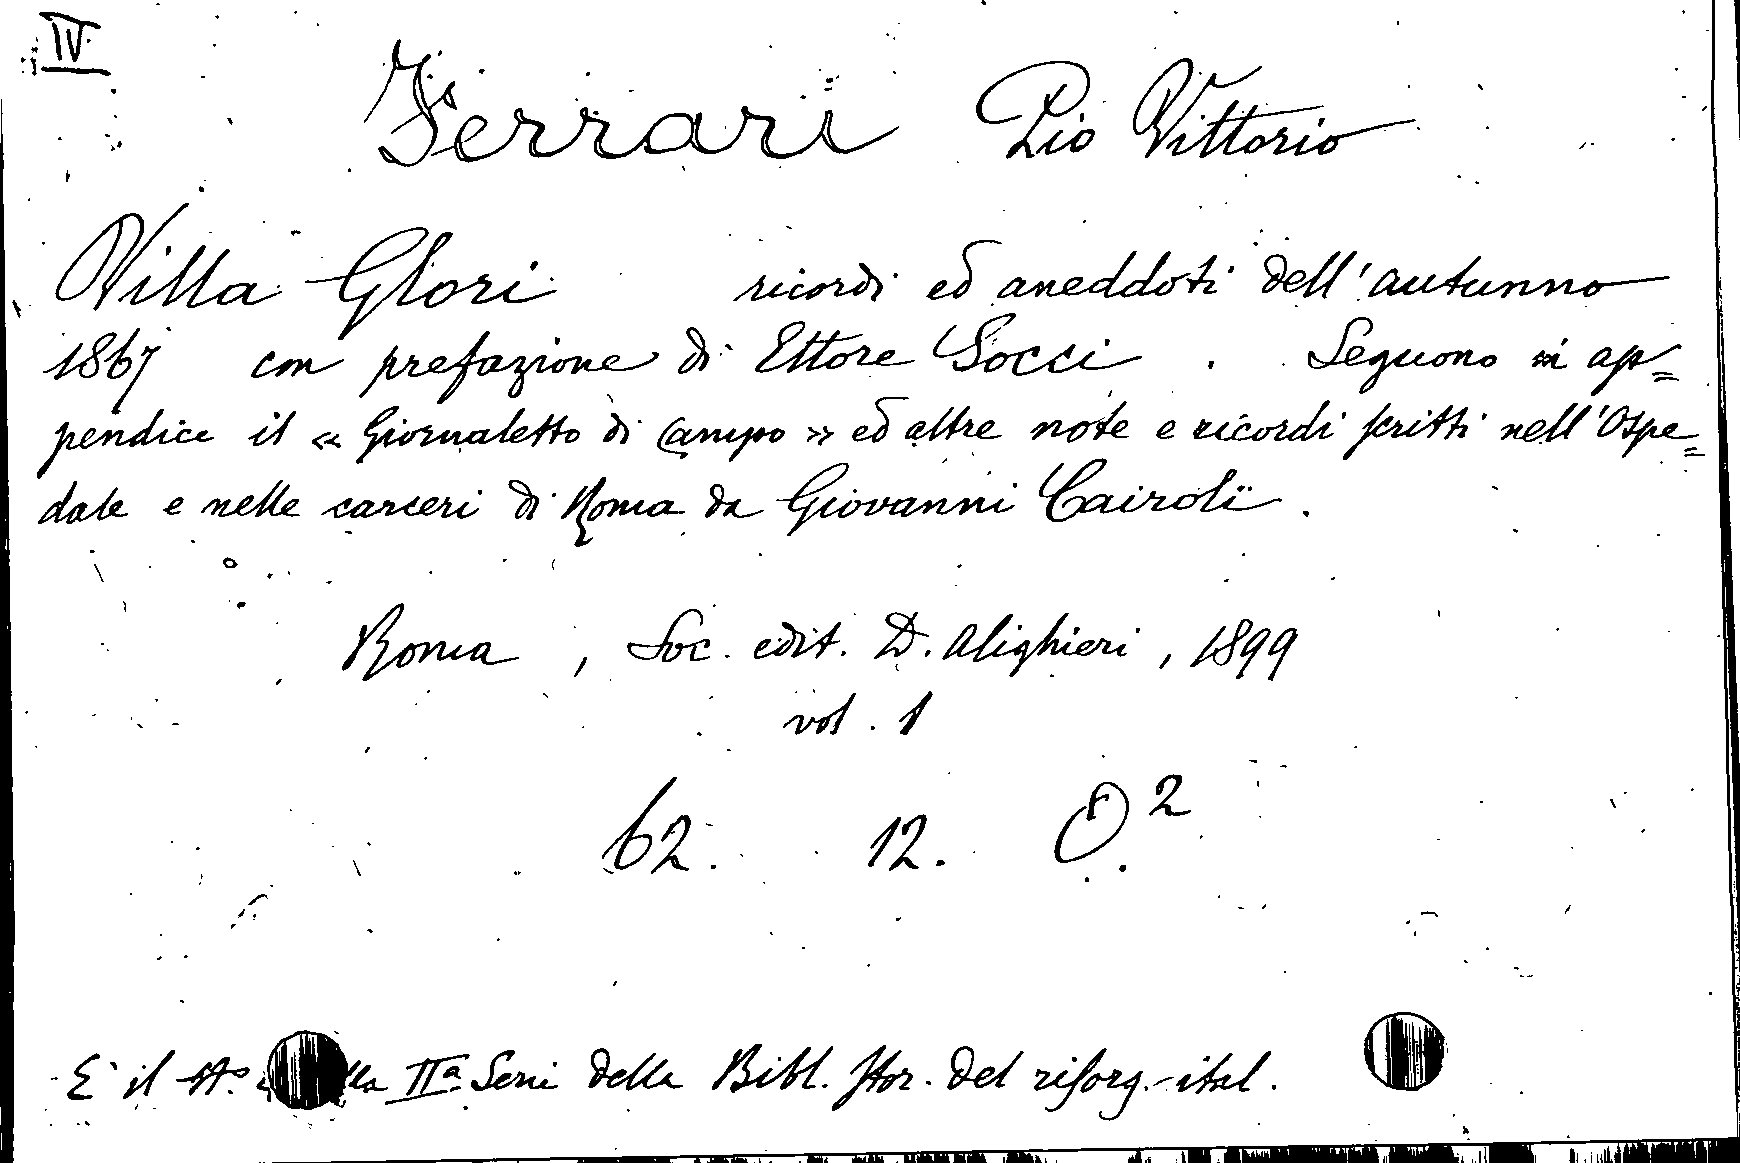 IV.
Ferrari Pio Vittorio
Villa Glori ricordi ed aneddoti dell'autunno
1867 con prefazione di Ettore Socci. Seguono in ap=
pendice il « Giornaletto di Campo » ed altre note e ricordi scritti nell'Ospe=
dale e nelle carceri di Roma da Giovanni Cairoli.
Roma, Soc. edit. D. Alighieri, 1899
vol. 1
62. 12. O.2
E' il IIa Serie della Bibl. Stor. del risorg. ital.